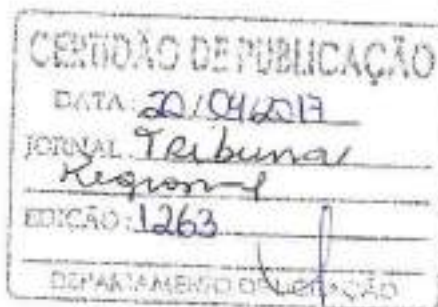 CERTIDÃO DE PUBLICAÇÃO
DATA: 20/04/2017
JORNAL Tribuna
Regional
EDIÇÃO: 1263
DEPARTAMENTO DE LICITAÇÃO